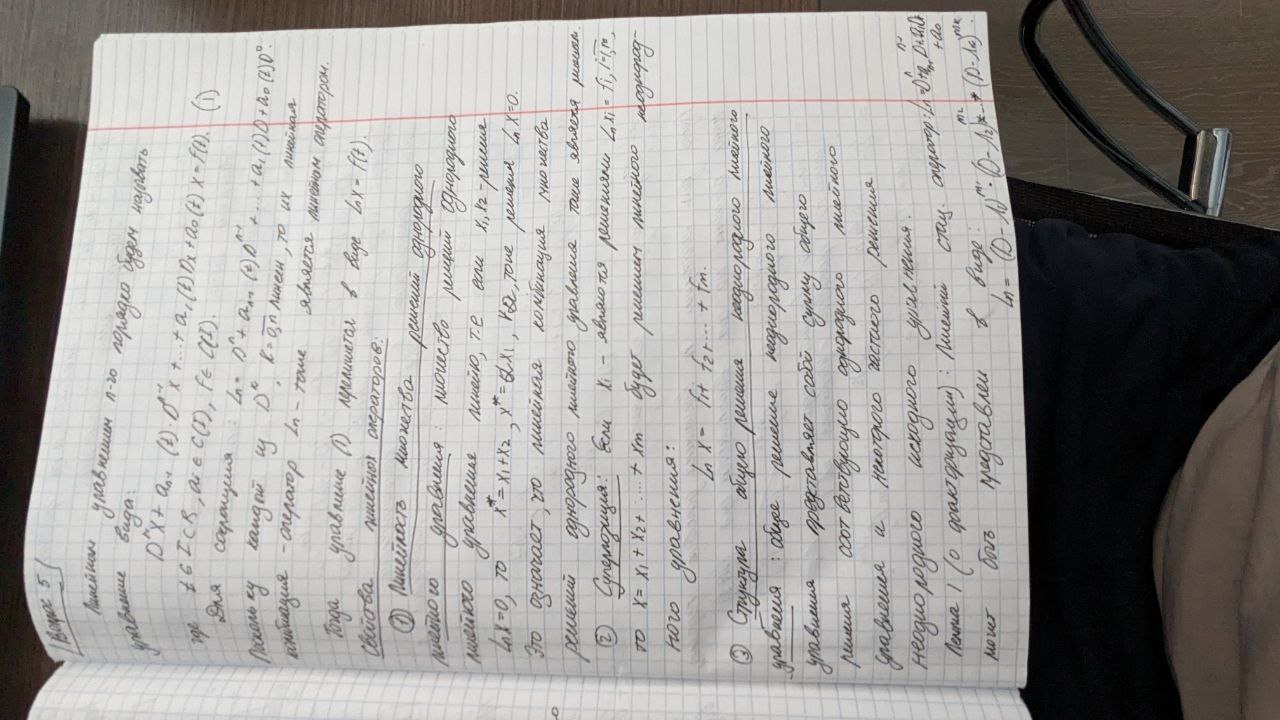 Вопрос 5
Линейным уравнением n-го порядка будем называть
уравнение вида:
Dⁿx + aₙ₋₁(t)·Dⁿ⁻¹x + ... + a₁(t)Dx + a₀(t)x = f(t). (1)
где t ∈ I ⊂ R, aᵢ ∈ C(I), f ∈ C(I).
Для сокращения: Lₙ = Dⁿ + aₙ₋₁(t)Dⁿ⁻¹ + ... + a₁(t)D + a₀(t)D⁰.
Поскольку каждый из Dᵏ, k = 0,n линеен, то их линейная
комбинация - оператор Lₙ - тоже является линейным оператором.
Тогда уравнение (1) перепишется в виде Lₙx = f(t).
Свойства линейных операторов:
① Линейность множества решений однородного
линейного уравнения: множество решений однородного
линейного уравнения линейно, т.е если x₁, x₂ - решения
Lₙx=0, то x* = x₁ + x₂, x* = αx₁, ∀α, тоже решения Lₙx=0.
Это означает, что линейная комбинация множества
решений однородного линейного уравнения также является решением.
② Суперпозиция: Если xᵢ - являются решениями Lₙxᵢ = fᵢ, i=1,m,
то x = x₁ + x₂ + ... + xₘ будет решением линейного неоднород-
ного уравнения:
Lₙ x = f₁ + f₂ + ... + fₘ.
③ Структура общего решения неоднородного линейного
уравнения: общее решение неоднородного линейного
уравнения представляет собой сумму общего
решения соответствующего однородного линейного
уравнения и некоторого частного решения
неоднородного исходного уравнения.
Лемма 1 (о факторизации): Линейный стац. оператор: Lₙ = Dⁿ + aₙ₋₁Dⁿ⁻¹ + ... a₁D +
+ a₀
может быть представлен в виде:
Lₙ = (D - λ₁)ᵐ¹ · (D - λ₂)ᵐ² * ... * (D - λₖ)ᵐᵏ.